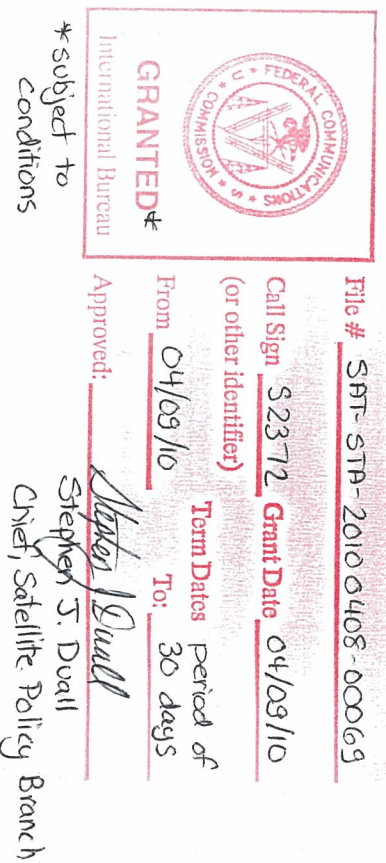 FEDERAL COMMUNICATIONS COMMISSION
U S
GRANTED*
International Bureau
*subject to
conditions
File # SAT-STA-20100408-00069
Call Sign S2372 Grant Date 04/09/10
(or other identifier)
Term Dates period of
From 04/09/10 To: 30 days
Approved: Stephen J Duall
Stephen J. Duall
Chief, Satellite Policy Branch